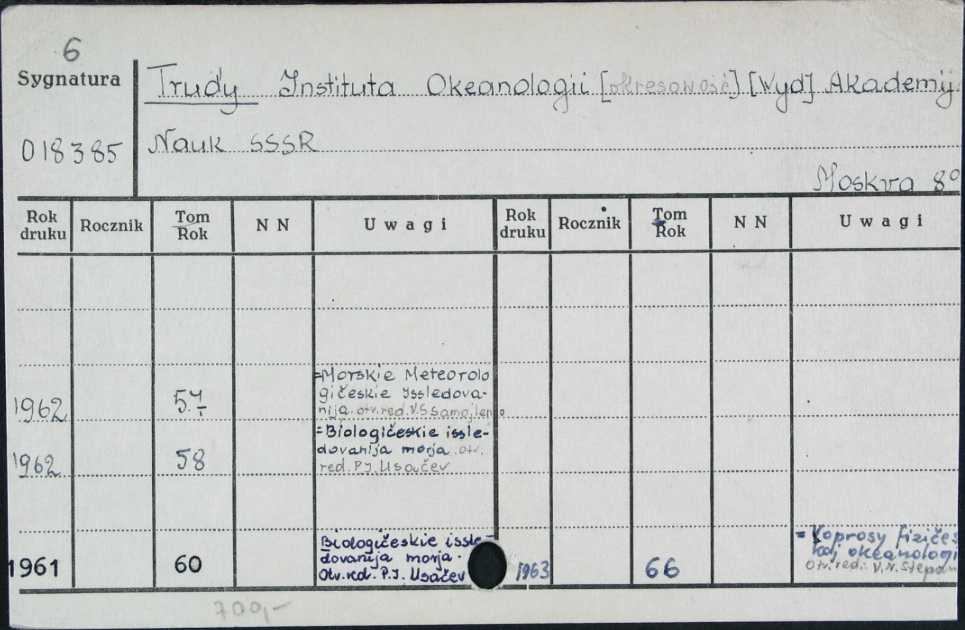 6
Sygnatura
018385
Trudy Instituta Okeanologii [okresowość] [Wyd] Akademij
Nauk SSSR
Moskva 8°
Rok druku Rocznik Tom Rok N N Uwagi Rok druku Rocznik Tom Rok N N Uwagi
1962 57
=Morskie Meteorolo
gičeskie Issledova-
nija. otv. red. V.S Samojlenko
1962 58
=Biologičeskie issle-
dovanija morja. otv.
red. P.I. Usačev
1961 60
Biologičeskie issle-
dovanija morja.
Otv. red. P.I. Usačev
1963 66
=Voprosy fizičes
koj okeanologi
Otv. red. V.N. Stepan
700,-